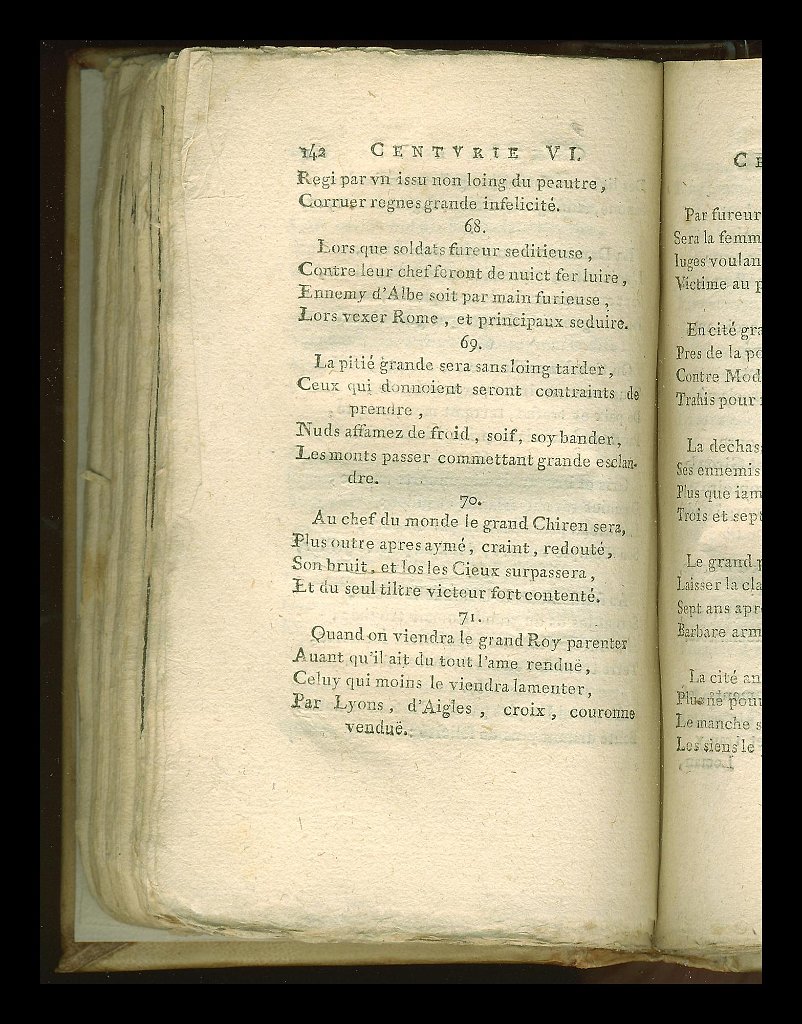 142 CENTVRIE VI.
Regi par vn issu non loing du peautre,
Corruer regnes grande infelicité.
68.
Lors que soldats fureur seditieuse,
Contre leur chef feront de nuict fer luire,
Ennemy d'Albe soit par main furieuse,
Lors vexer Rome, et principaux seduire.
69.
La pitié grande sera sans loing tarder,
Ceux qui donnoient seront contraints de
prendre,
Nuds affamez de froid, soif, soy bander,
Les monts passer commettant grande esclan-
dre.
70.
Au chef du monde le grand Chiren sera,
Plus outre apres aymé, craint, redouté,
Son bruit, et los les Cieux surpassera,
Et du seul tiltre victeur fort contenté.
71.
Quand on viendra le grand Roy parenter
Auant qu'il ait du tout l'ame renduë,
Celuy qui moins le viendra lamenter,
Par Lyons, d'Aigles, croix, couronne
venduë.
CE
Par fureur
Sera la femm
luges voulan
Victime au p
En cité gra
Pres de la po
Contre Mod
Trahis pour
La dechas
Ses ennemis
Plus que iam
Trois et sept
Le grand p
Laisser la cla
Sept ans apr
Barbare arm
La cité an
Plus ne pour
Le manche s
Les siens le